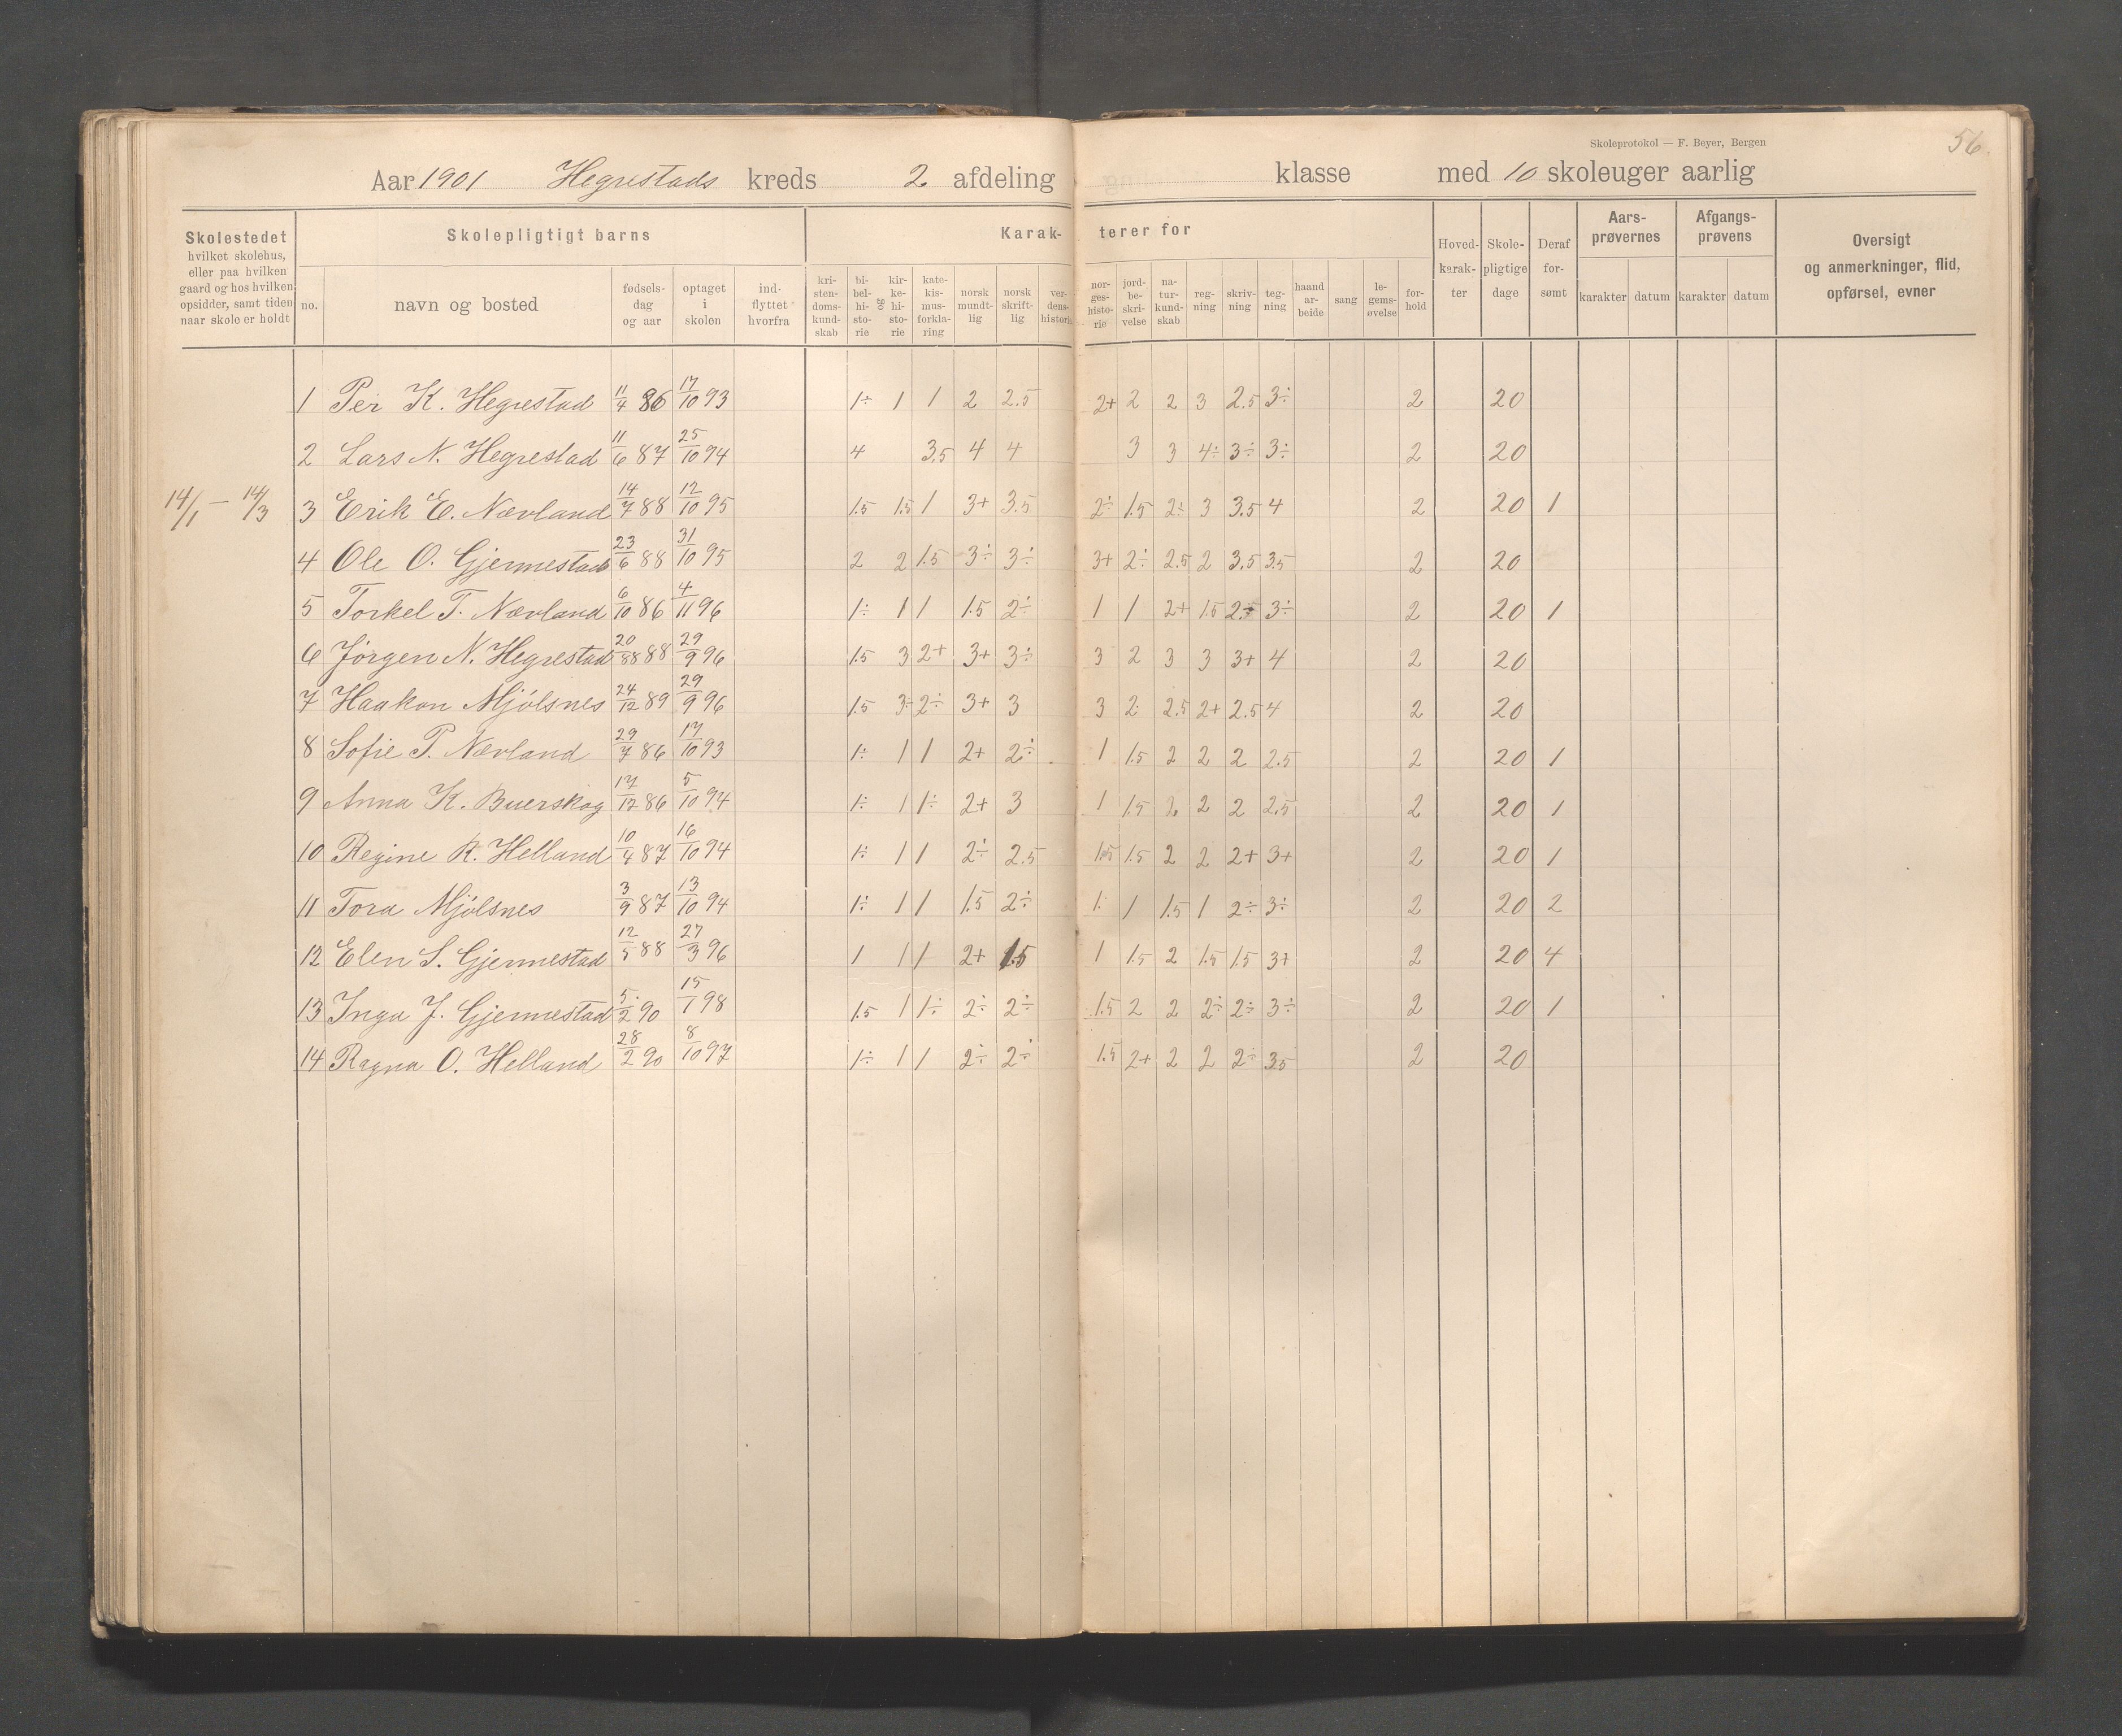 Skoleprotokol — F. Beyer, Bergen
56.
Aar 1901 Hegrestads kreds 2 afdeling klasse med 10 skoleuger aarlig
Skolestedet hvilket skolehus, eller paa hvilken gaard og hos hvilken opsidder, samt tiden naar skole er holdt
Skolepligtigt barns
no. navn og bosted fødsels-dag og aar optaget i skolen ind-flyttet hvorfra
Karak-terer for
kri-sten-doms-kund-skab bi-bel-hi-sto-rie og kir-ke-hi-sto-rie kate-kis-mus-forkla-ring norsk mundt-lig norsk skrift-lig ver-dens-historie nor-ges-histo-rie jord-be-skri-velse na-tur-kund-skab reg-ning skriv-ning teg-ning haand ar-beide sang le-gems-øvelse for-hold
Hoved-karak-ter Skole-pligtige dage Deraf for-sømt
Aars-prøvernes karakter datum
Afgangs-prøvens karakter datum
Oversigt og anmerkninger, flid, opførsel, evner
1 Per K. Hegrestad 11/4 86 17/10 93 1÷ 1 1 2 2.5 2+ 2 2 3 2.5 3÷ 2 20
2 Lars N. Hegrestad 11/6 87 25/10 94 4 3.5 4 4 3 3 4÷ 3÷ 3÷ 2 20
14/1 — 14/3 3 Erik E. Nævland 14/7 88 12/10 95 1.5 1.5 1 3+ 3.5 2÷ 1.5 2÷ 3 3.5 4 2 20 1
4 Ole O. Gjermestad 23/6 88 31/10 95 2 2 1.5 3÷ 3÷ 3+ 2÷ 2.5 2 3.5 3.5 2 20
5 Torkel T. Nævland 6/10 86 4/11 96 1÷ 1 1 1.5 2÷ 1 1 2+ 1.5 3÷ 2 20 1
6 Jörgen N. Hegrestad 20/88 88 29/9 96 1.5 3 2+ 3+ 3÷ 3 2 3 3 3+ 4 2 20
7 Haakon Mjölsnes 24/12 89 29/9 96 1.5 3÷ 2÷ 3+ 3 3 2 2.5 2+ 2.5 4 2 20
8 Sofie T. Nævland 29/7 86 17/10 93 1÷ 1 1 2+ 2÷ 1 1.5 2 2 2 2.5 2 20 1
9 Anna K. Buerskog 17/12 86 5/10 94 1÷ 1 1÷ 2+ 3 1 1.5 2 2 2 2.5 2 20 1
10 Regine R. Helland 10/4 87 16/10 94 1÷ 1 1 2÷ 2.5 1.5 1.5 2 2 2+ 3+ 2 20 1
11 Tora Mjölsnes 3/9 87 13/10 94 1÷ 1 1 1.5 2÷ 1 1 1.5 1 2÷ 3÷ 2 20 2
12 Elen S. Gjermestad 12/5 88 27/3 96 1 1 1 2+ 1.5 1 1.5 2 1.5 1.5 3+ 2 20 4
13 Inga J. Gjermestad 5/2 90 15/1 98 1.5 1 1÷ 2÷ 2÷ 1.5 2 2 2÷ 2÷ 3÷ 2 20 1
14 Ragna O. Helland 28/2 90 8/10 97 1÷ 1 1 2÷ 2÷ 1.5 2+ 2 2 2÷ 3.5 2 20